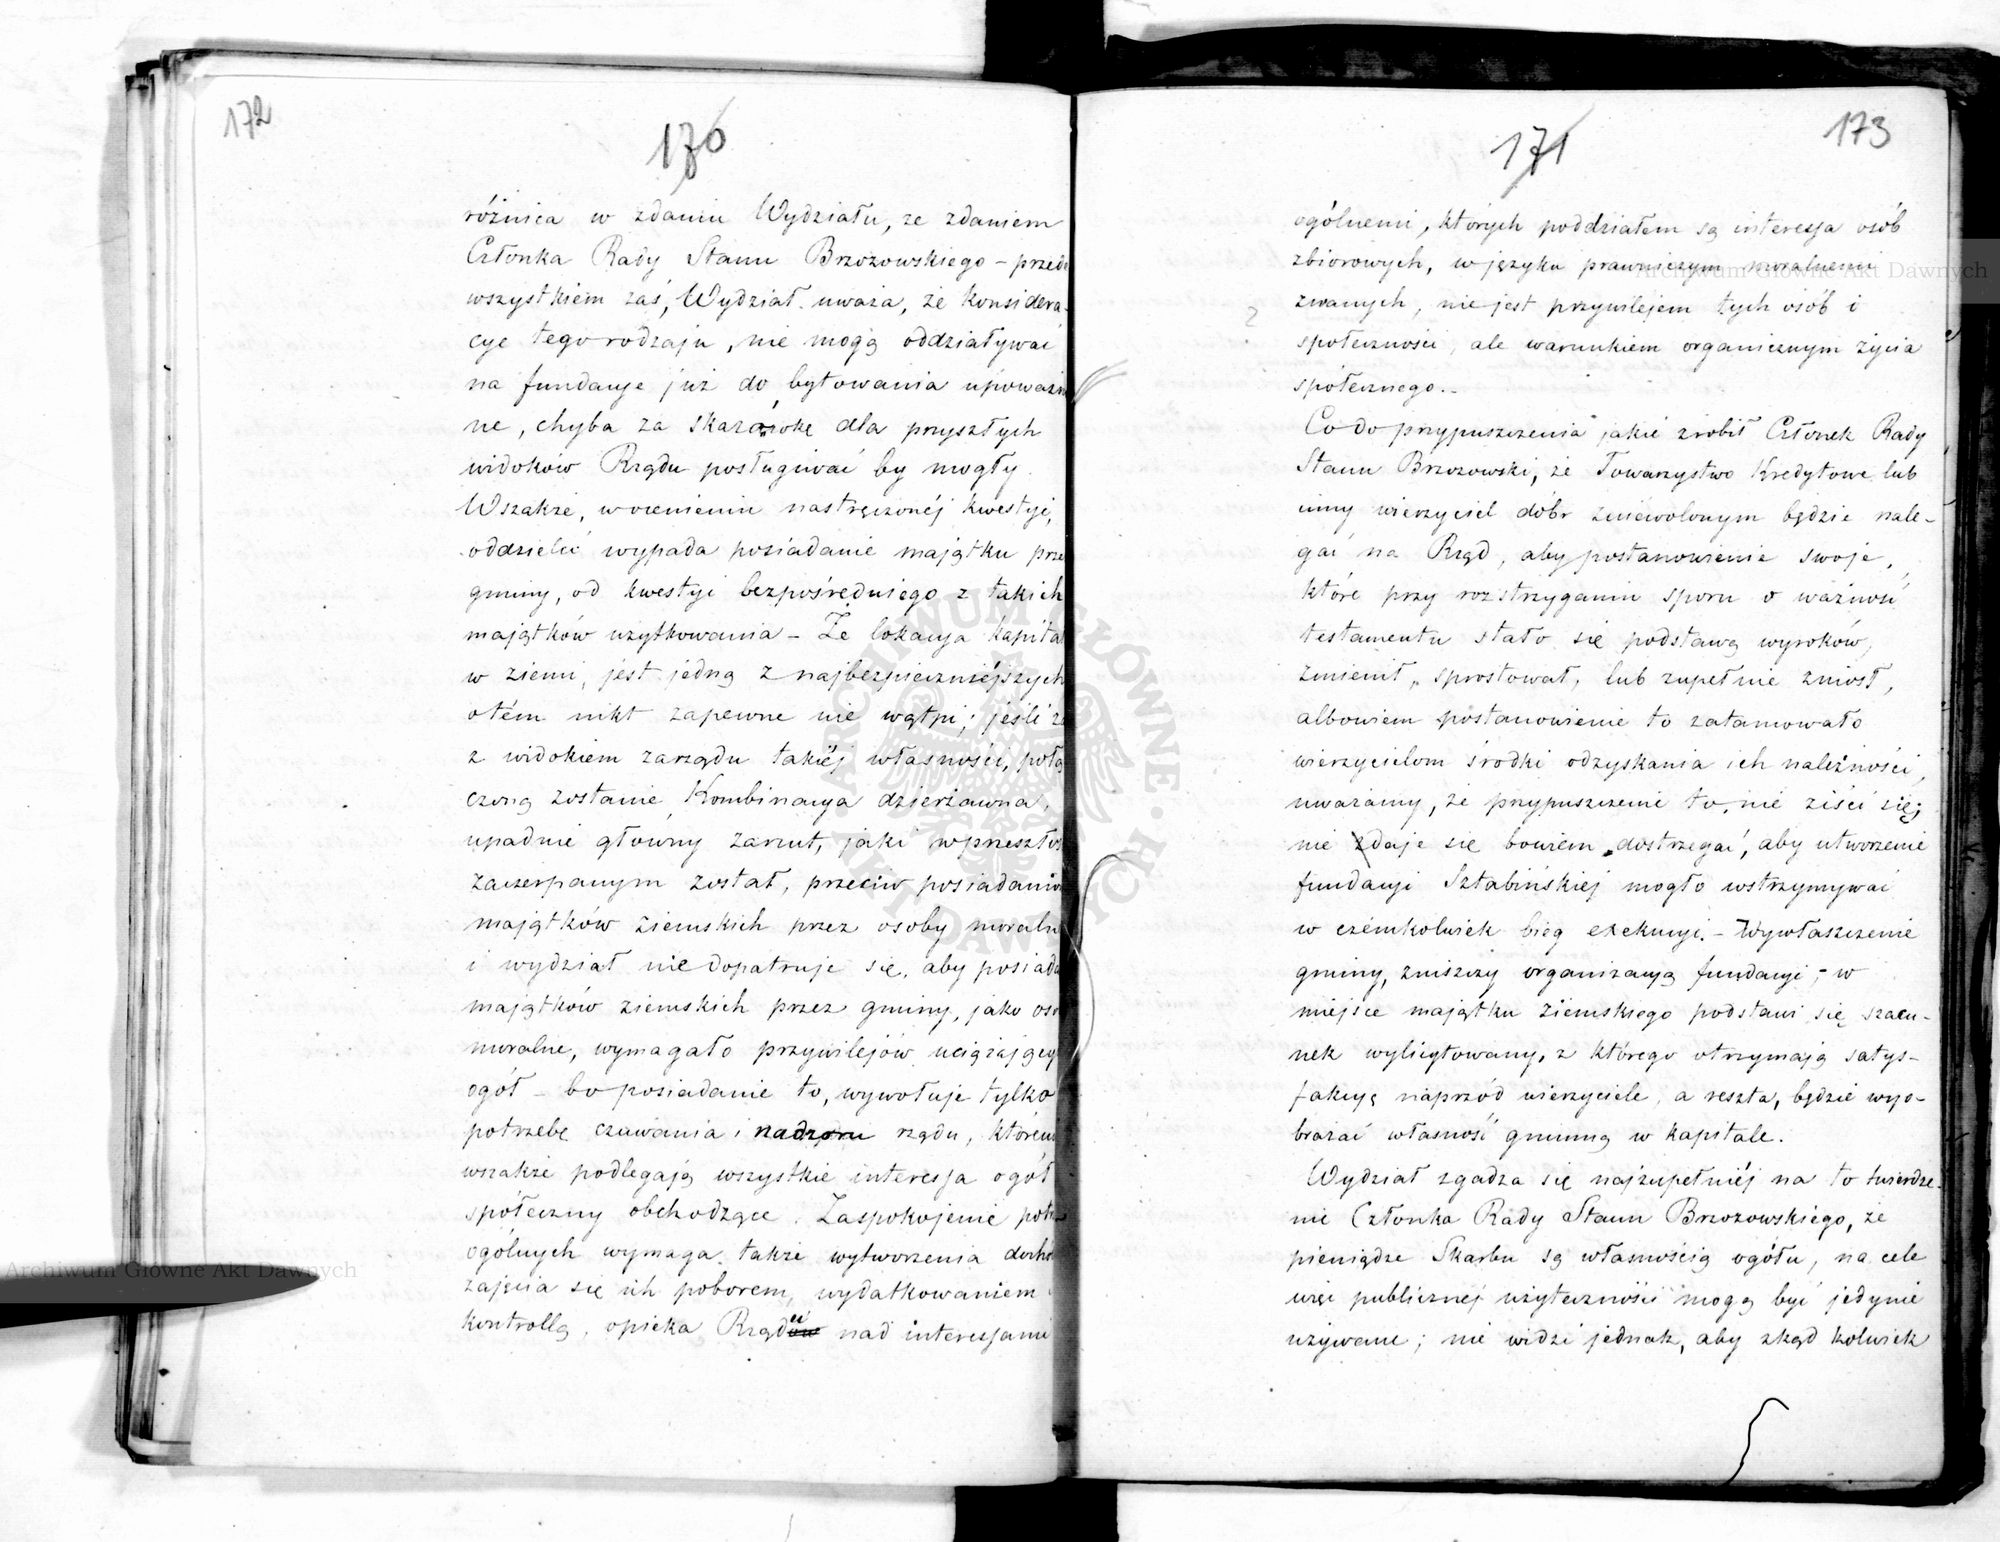 172
170
różnica w zdaniu Wydziału, ze zdaniem
Członka Rady Stanu Brzozowskiego – przede
wszystkiem zaś, Wydział uważa, że konsidera-
cye tego rodzaju, nie mogą oddziaływać
na fundacye już do bytowania upoważn
ne, chyba za skazówkę dla przyszłych
widoków Rządu posługiwać by mogły.
Wszakże, w ocenieniu nastręczonéj kwestyi,
oddzielić wypada posiadanie majątku prze
gminy, od kwestyi bezpośredniego z takich
majątków użytkowania – Że lokacya kapitał
w ziemi, jest jedną z najbezpieczniéjszych
o tém nikt zapewne nie wątpi; jeśli za
z widokiem zarządu takiéj własności, połą
czoną zostanie Kombinacya dzierżawna,
upadnie główny zarzut, jaki w przeszłoś
zaczerpanym został, przeciw posiadaniu
majątków ziemskich przez osoby moraln
i wydział nie dopatruje się, aby posiada
majątków ziemskich przez gminy, jako oso
moralne, wymagało przywilejów uciążający
ogół – bo posiadanie to, wywołuje tylko
potrzebę czuwania i nadzoru rządu, któremu
wszakże podlegają wszystkie interesja ogół
spółeczny obchodzące. Zaspokojenie potrz
ogólnych wymaga także wytworzenia docho
zajęcia się ich poborem, wydatkowaniem i
kontrollą, opieka Rządu nad interesjami
173
171
ogólnemi, których poddziałem są interesja osób
zbiorowych, w języku prawniczym moralnemi
zwanych, nie jest przywilejem tych osób i
społeczności, ale warunkiem organicznym życia
społecznego. –
Co do przypuszczenia jakie zrobił Członek Rady
Stanu Brzozowski, że Towarzystwo Kredytowe lub
inny wierzyciel dóbr zniewolonym będzie nale-
gać na Rząd, aby postanowienie swoje,
które przy rozstrzyganiu sporu o ważność
testamentu stało się podstawą wyroków,
zmienił, sprostował, lub zupełnie zniósł,
albowiem postanowienie to zatamowało
wierzycielom środki odzyskania ich należności,
uważamy, że przypuszczenie to, nie ziści się;
nie zdaje się bowiem dostrzegać, aby utworzenie
fundacyi Sztabińskiej mogło wstrzymywać
w czémkolwiek bieg exekucyi. – Wywłaszczenie
gminy, zniszczy organizacyą fundacyi, – w
miejsce majątku ziemskiego podstawi się szacu-
nek wylicytowany, z którego otrzymają satys-
fakcyę naprzód wierzyciele, a reszta, będzie wyo-
brażać własność gminną w kapitale.
Wydział zgadza się najzupełniéj na to twierdze-
nie Członka Rady Stanu Brzozowskiego, że
pieniądze Skarbu są własnością ogółu, na cele
więc publicznéj użyteczności mogą być jedynie
używane; nie widzi jednak, aby zkąd kolwiek
ARCHIWUM GŁÓWNE AKT DAWNYCH
Archiwum Główne Akt Dawnych
Archiwum Główne Akt Dawnych